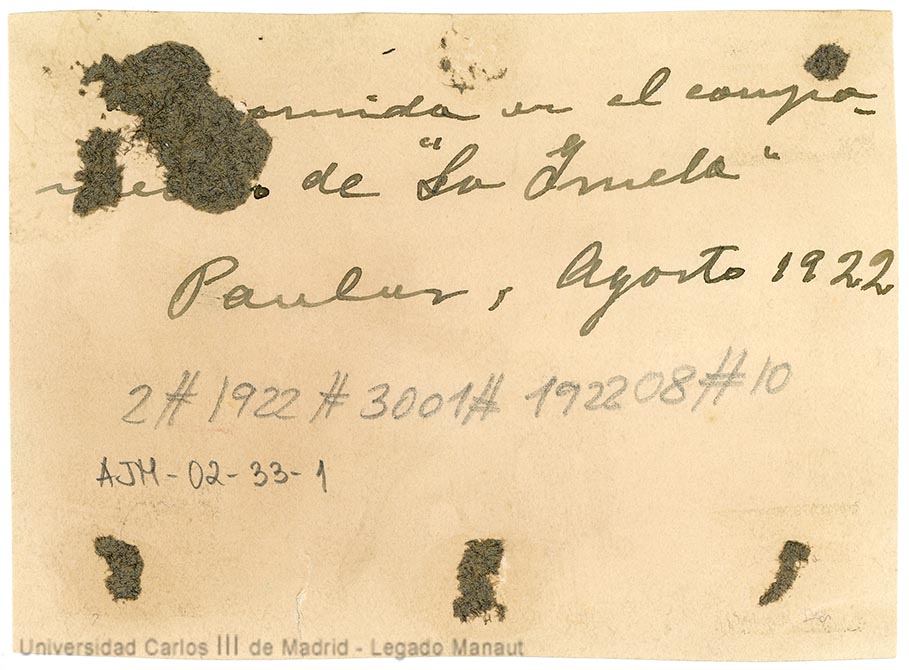 omida en el campa-
de "La
Paular, Agosto 1922
2#1922#3001#192208#10
AJM-02-33-1
Universidad Carlos III de Madrid - Legado Manaut